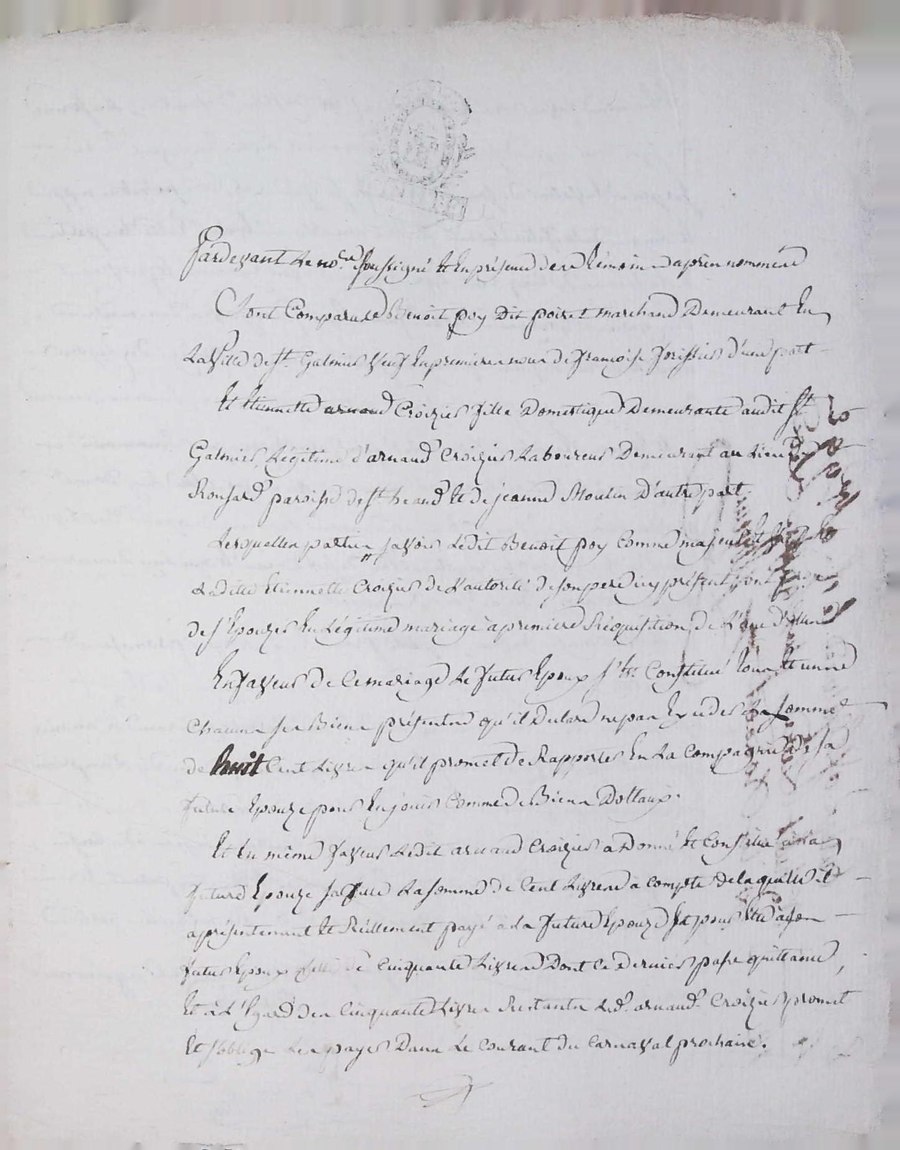 Pardevant Le no.re soussigné Et En présence des temoins dapres nommés
Sont Comparus Benoit poy Dit poiret marchand Demeurant En
La ville de St. Galmier veuf En premieres noces de francoise d'une part
Et Etiennette arnaud Croizier fille Domestique Demeurante audit St
Galmier Légitime d'arnaud Croizier Laboureur Demeurant au lieu
paroisse de St Et de jeanne Moulin D'autre part
Lesquelles parties, savoir Ledit Benoit poy Comme majeur
Ladite Etiennette Croizier de L'autorité de son pere icy présent, ont
de s'Epouzer En Légitime mariage a premiere Réquisition de L'une d'elles
En faveur de Ce mariage Le futur Epoux s'Est Constitué tous Et uns
Chacuns ses Biens présents qu'il Declare ne pas Exceder La somme
de huit Cent Livres qu'il promet de Rapporter En La Compagnie de sa
future Epouze pour En jouir Comme de Biens Dottaux.
Et En même faveur Ledit arnaud Croizier a Donné Et Constitué a la
future Epouze sa fille La somme de Cent Livres a compte de laquelle il
a présentement Et Réellement payé à La future Epouze Et pour Elle a son
futur Epoux celle de Cinquante Livres Dont Ce Dernier passe quittance,
Et à L'Egard des Cinquante Livres Restantes Led. arnaud Croizier promet
Et s'oblige Les payer Dans Le Courant du Carnaval prochain.